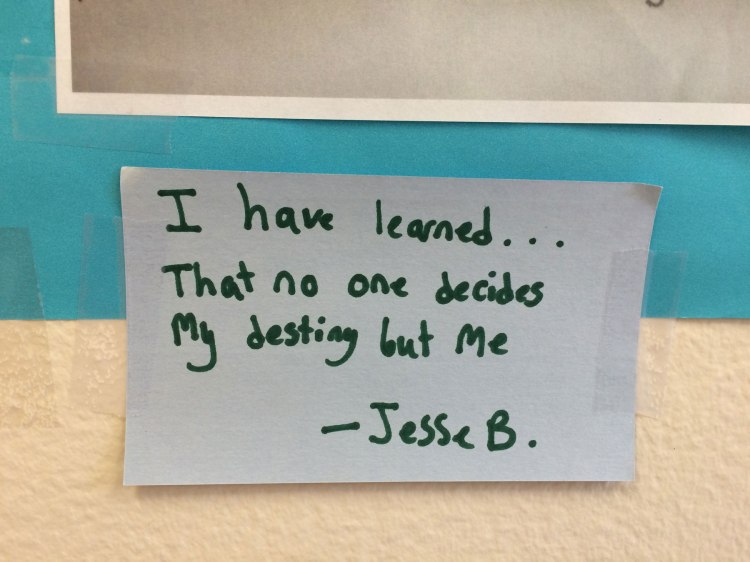 I have learned...
That no one decides
My destiny but Me
- Jesse B.